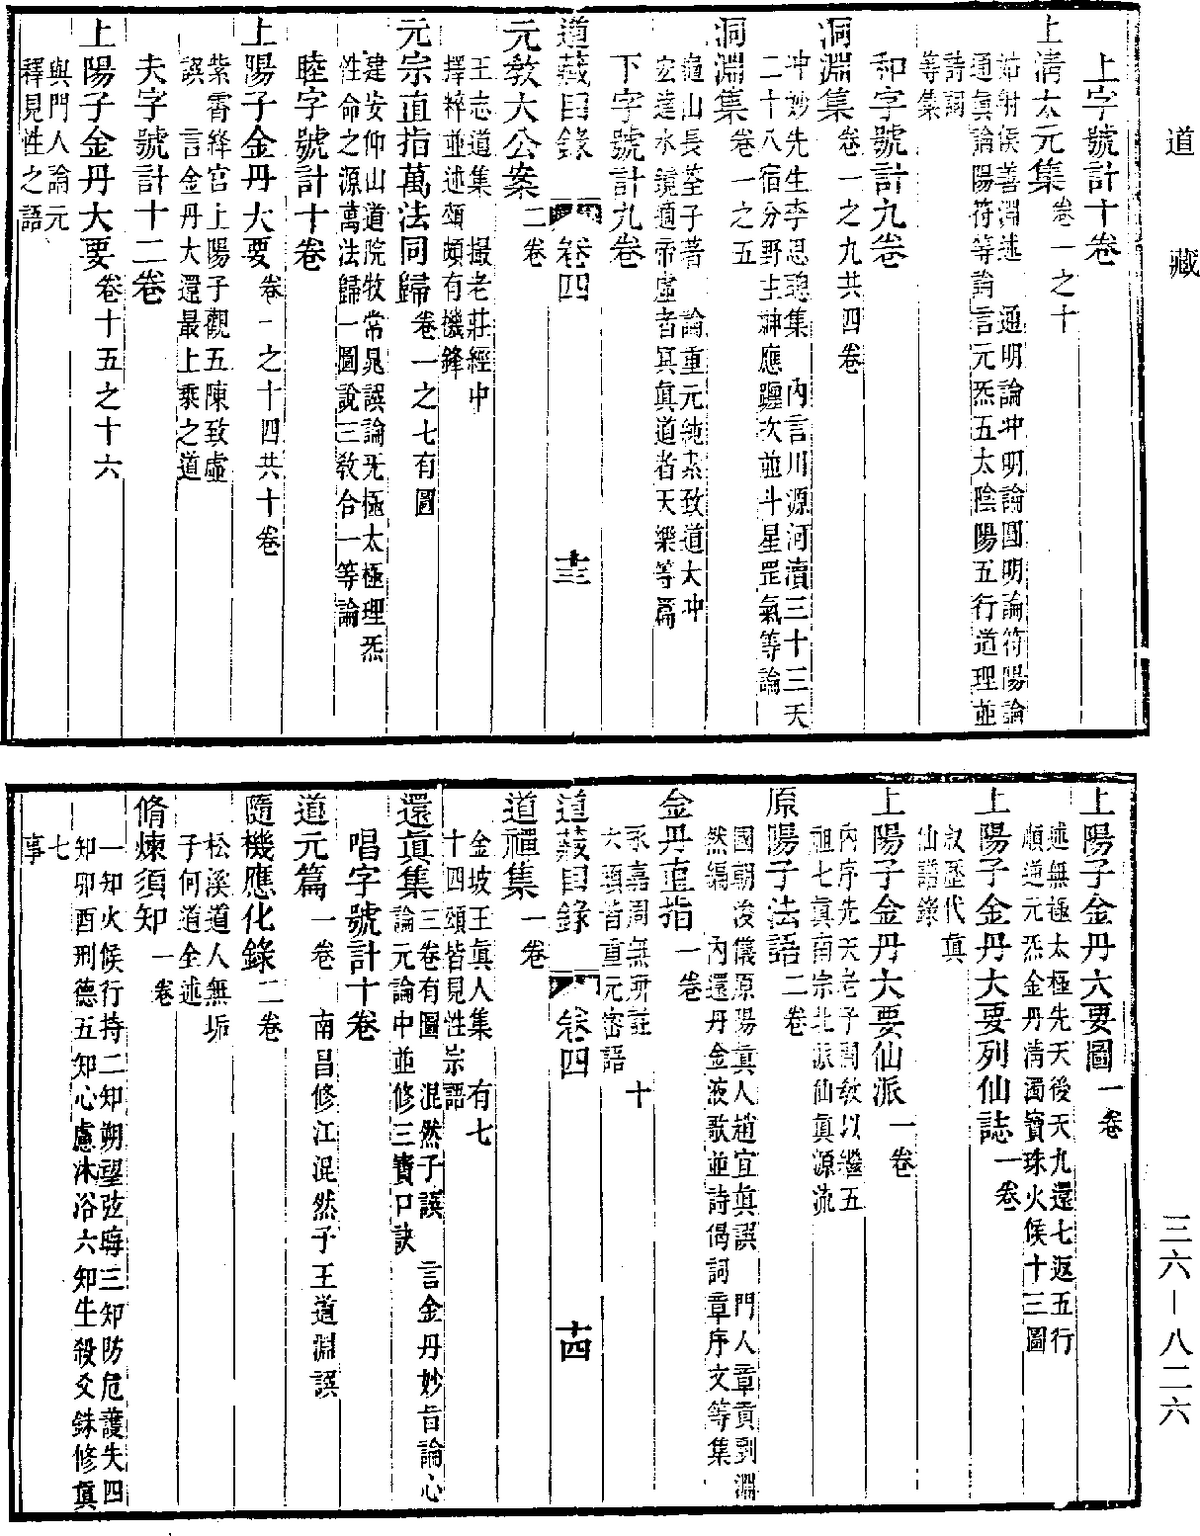 道藏
三六—八二六
上字號計十卷
上清太元集卷一之十
姑射侯善淵述　通明論冲明論圓明論符陽論
通眞論陽符等論言元炁五太陰陽五行道理並
詩詞
等集
和字號計九卷
洞淵集卷一之九共四卷
冲妙先生李思聰集　內言川源河瀆三十三天
二十八宿分野主神應躔次並斗星罡氣等論
洞淵集卷一之五
龜山長筌子著　論重元純素致道大冲
宏達水鏡適帝虛者冥眞道者天樂等篇
下字號計九卷
道藏目錄　卷四　十三
元敎大公案二卷
王志道集　撮老莊經中
擇粹並述頌頗有機鋒
元宗直指萬法同歸卷一之七有圖
建安仰山道院牧常晁譔論无極太極理炁
性命之源萬法歸一圖說三敎合一等論
睦字號計十卷
上陽子金丹大要卷一之十四共十卷
紫霄絳宮上陽子觀五陳致虛
譔　言金丹大還最上乘之道
夫字號計十二卷
上陽子金丹大要卷十五之十六
與門人論元
釋見性之語
上陽子金丹大要圖一卷
述無極太極先天後天九還七返五行
顛逆元炁金丹清濁寶珠火候十三圖
上陽子金丹大要列仙誌一卷
叙歷代眞
仙譜錄
上陽子金丹大要仙派一卷
內序先天老子開敎以繼五
祖七眞南宗北派仙眞源流
原陽子法語二卷
國朝浚儀原陽眞人趙宜眞譔　門人章貢劉淵
然編　內還丹金液歌並詩偈詞章序文等集
金丹直指一卷
永嘉周無所註　十
六頌皆重元密語
道藏目錄　卷四　十四
道禪集一卷
金坡王眞人集　有七
十四頌皆見性宗語
還眞集三卷有圖　混然子譔　言金丹妙旨論心
論元論中並修三寶口訣
唱字號計十卷
道元篇一卷　南昌修江混然子王道淵譔
隨機應化錄二卷
松溪道人無垢
子何道全述
脩煉須知一卷
一知火候行持二知朔望弦晦三知防危護失四
知卯酉刑德五知心慮沐浴六知生殺爻銖修眞
七
事